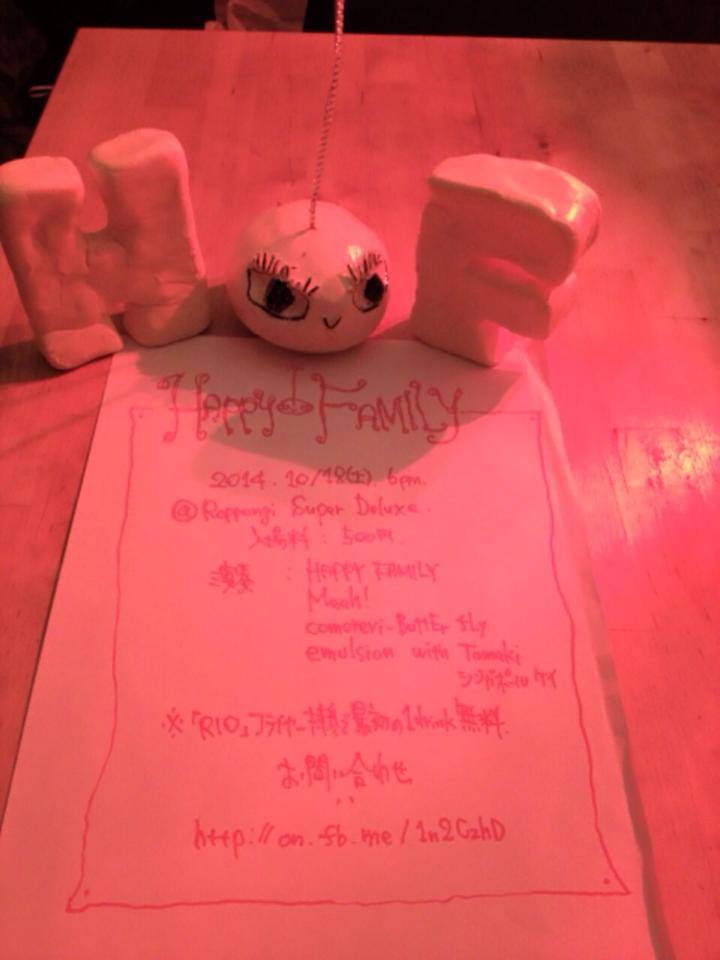 H F
HAPPY FAMILY
2014. 10/18(土) 6pm.
@ Roppongi Super Deluxe.
入場料 : 500円
演奏 : HAPPY FAMILY
Meah!
comoreri-ButtEr fly
emulsion with Tamaki
シンガポール ケイ
※「RIO」フライヤー持参で最初の1drink無料.
お問い合わせ
http://on.fb.me/1n2GzhD